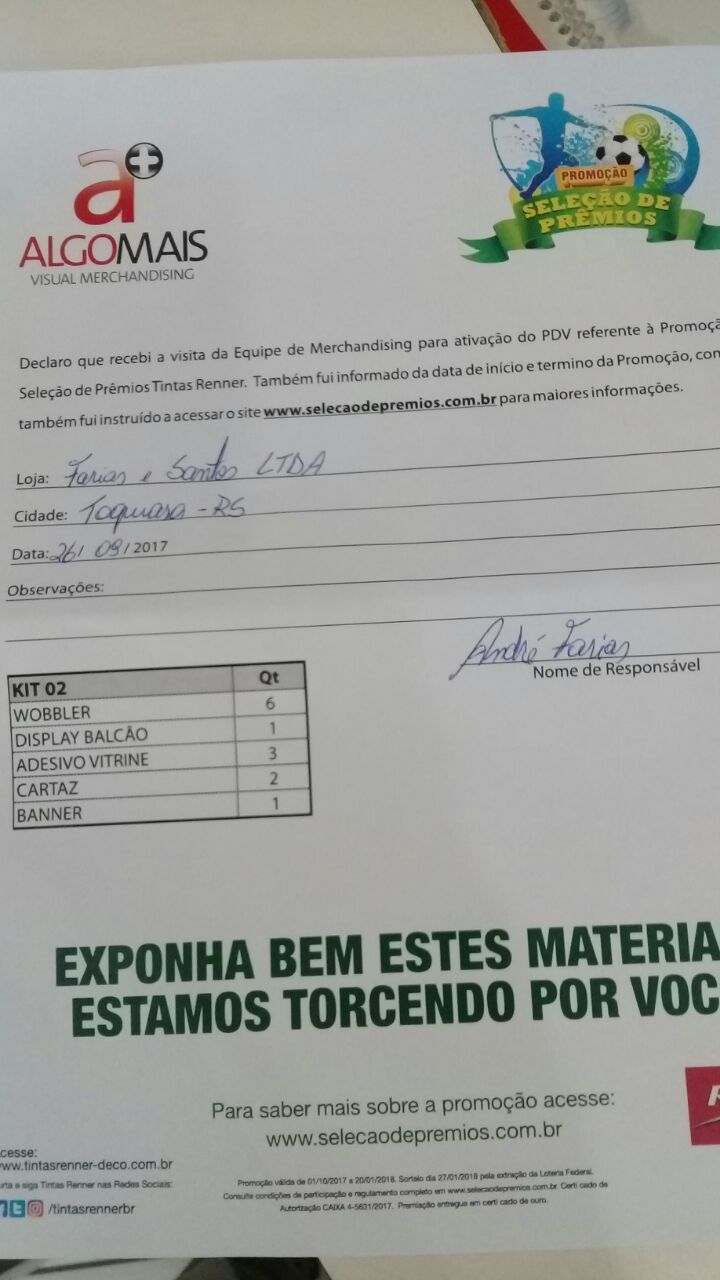 a+
ALGOMAIS
VISUAL MERCHANDISING
PROMOÇÃO
SELEÇÃO DE
PRÊMIOS
Declaro que recebi a visita da Equipe de Merchandising para ativação do PDV referente à Promoçã
Seleção de Prêmios Tintas Renner. Também fui informado da data de início e termino da Promoção, com
também fui instruído a acessar o site www.selecaodepremios.com.br para maiores informações.
Loja: Farias e Santos LTDA
Cidade: Toquara - RS
Data: 26/09/2017
Observações:
André Farias
Nome de Responsável
KIT 02 Qt
WOBBLER 6
DISPLAY BALCÃO 1
ADESIVO VITRINE 3
CARTAZ 2
BANNER 1
EXPONHA BEM ESTES MATERIA
ESTAMOS TORCENDO POR VOC
Para saber mais sobre a promoção acesse:
www.selecaodepremios.com.br
R
cesse:
ww.tintasrenner-deco.com.br
urta e siga Tintas Renner nas Redes Sociais:
/tintasrennerbr
Promoção válida de 01/10/2017 a 20/01/2018. Sorteio dia 27/01/2018 pela extração da Loteria Federal.
Consulte condições de participação e regulamento completo em www.selecaodepremios.com.br. Certi cado de
Autorização CAIXA 4-5631/2017. Premiação entregue em certi cado de ouro.